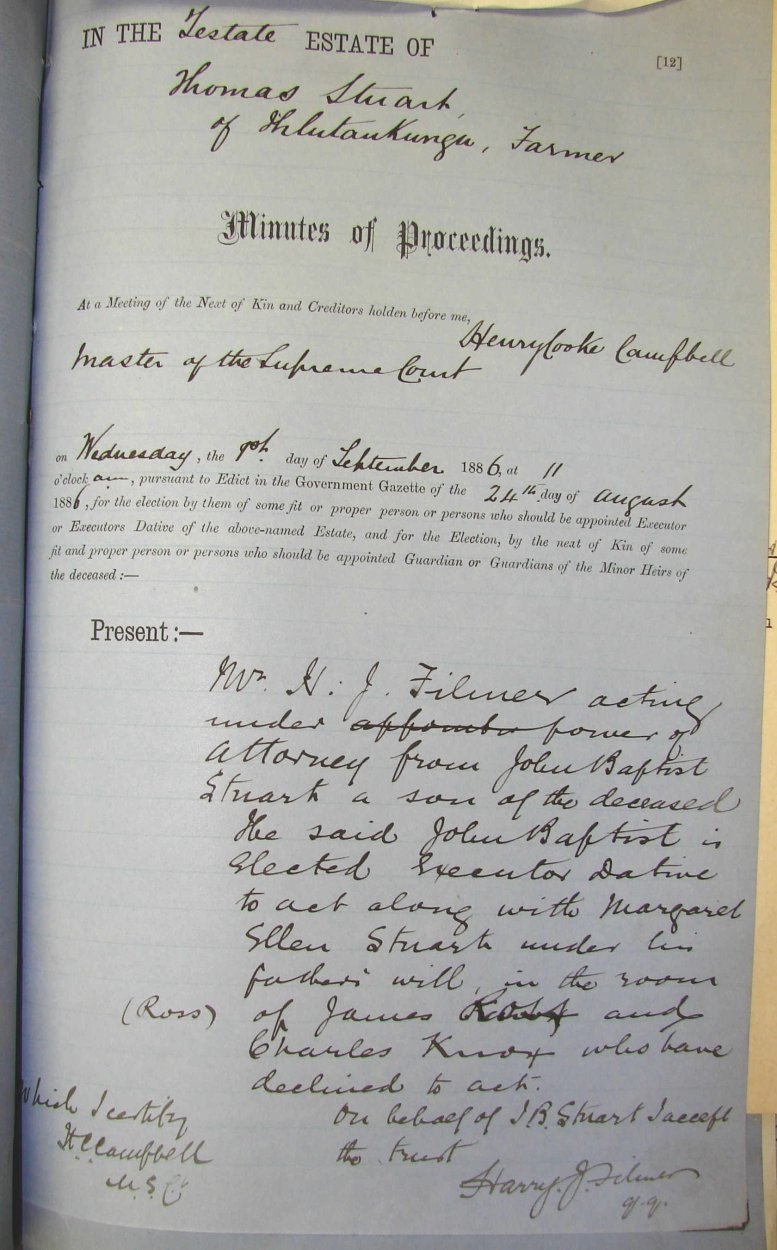 IN THE Testate ESTATE OF
[12]
Thomas Stuart,
of Hlutankungu, Farmer
Minutes of Proceedings.
At a Meeting of the Next of Kin and Creditors holden before me,
Henry Cooke Campbell
Master of the Supreme Court
on Wednesday, the 1st day of September 1886, at 11
o'clock am, pursuant to Edict in the Government Gazette of the 24th day of August
1886, for the election by them of some fit or proper person or persons who should be appointed Executor
or Executors Dative of the above-named Estate, and for the Election, by the next of Kin of some
fit and proper person or persons who should be appointed Guardian or Guardians of the Minor Heirs of
the deceased :—
Present :—
Mr. H. J. Filmer acting
under power of
Attorney from John Baptist
Stuart a son of the deceased
The said John Baptist is
Elected Executor Dative
to act along with Margaret
Ellen Stuart under his
fathers' will, in the room
(Ross) of James and
Charles Knox who have
declined to act.
Which I certify
H C Campbell
M. S. Ct
On behalf of J. B. Stuart I accept
the trust
Harry. J. Filmer
q.q.